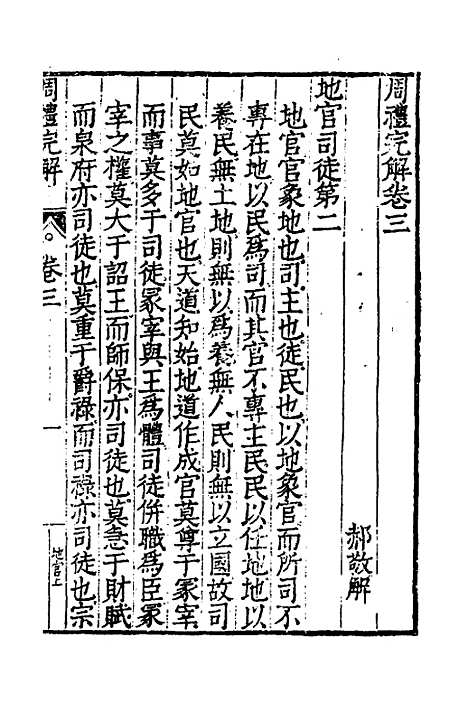 周禮完解卷三
郝敬解
地官司徒第二
地官官象地也司主也徒民也以地象官而所司不
專在地以民爲司而其官不專主民民以任地地以
養民無土地則無以爲養無人民則無以立國故司
民莫如地官也天道知始地道作成官莫尊于冢宰
而事莫多于司徒冢宰與王爲體司徒併職爲臣冢
宰之權莫大于詔王而師保亦司徒也莫急于財賦
而泉府亦司徒也莫重于爵祿而司祿亦司徒也宗
周禮完解
卷三
一
地官上